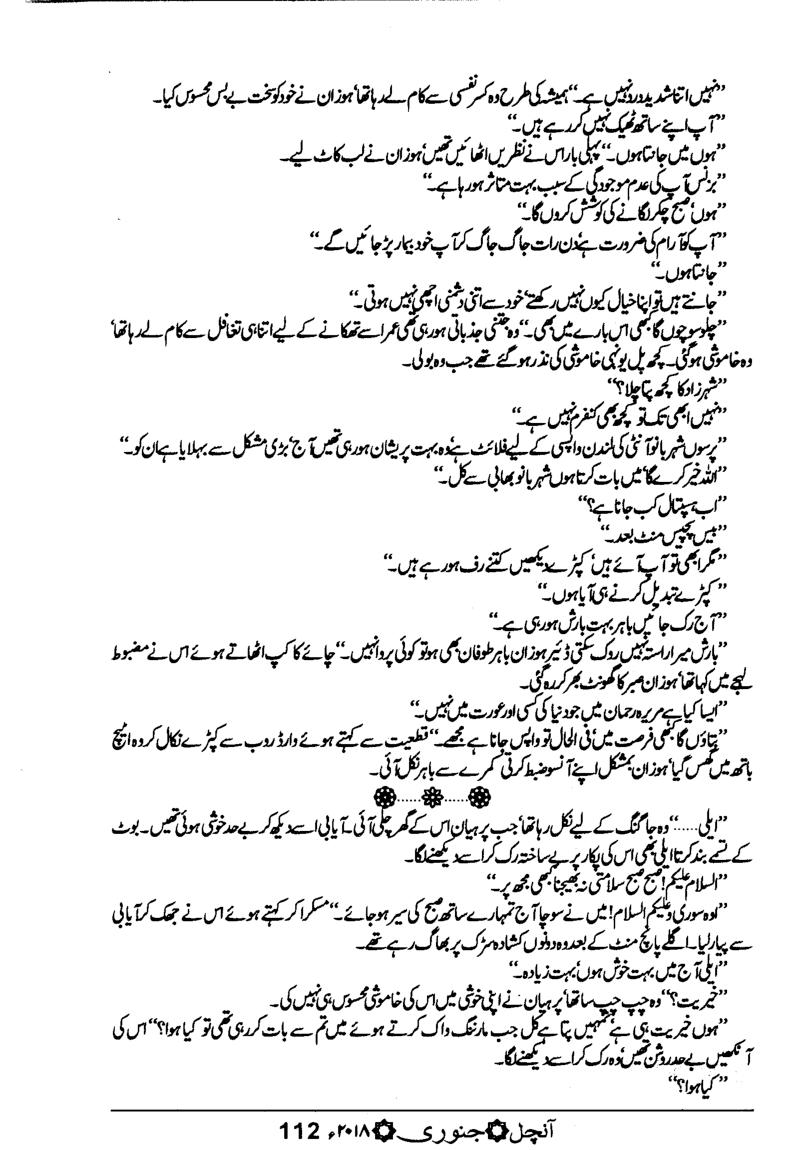 ”نہیں اتنا شدید درد نہیں ہے۔“ ہمیشہ کی طرح وہ کسر نفسی سے کام لے رہا تھا‘ ہوزان نے خود کو سخت بے بس محسوس کیا۔
”آپ اپنے ساتھ ٹھیک نہیں کر رہے ہیں۔“
”ہوں میں جانتا ہوں۔“ پہلی بار اس نے نظریں اٹھائیں تھیں‘ ہوزان نے لب کاٹ لیے۔
”بزنس آپ کی عدم موجودگی کے سبب بہت متاثر ہو رہا ہے۔“
”ہوں‘ صبح چکر لگانے کی کوشش کروں گا۔“
”آپ کو آرام کی ضرورت ہے‘ دن رات جاگ جاگ کر آپ خود بیمار پڑ جائیں گے۔“
”جانتا ہوں۔“
”جانتے ہیں تو اپنا خیال کیوں نہیں رکھتے‘ خود سے اتنی دشمنی اچھی نہیں ہوتی۔“
”چلو سوچوں گا کبھی اس بارے میں بھی۔“ وہ جتنی جذباتی ہو رہی تھی عمر اسے تھکانے کے لیے اتنا ہی تغافل سے کام لے رہا تھا‘
وہ خاموش ہو گئی۔ کچھ پل یونہی خاموشی کی نذر ہو گئے تھے جب وہ بولی۔
”شہرزاد کا کچھ پتا چلا؟“
”نہیں ابھی تک تو کچھ بھی کنفرم نہیں ہے۔“
”پرسوں شہربانو آنٹی کی لندن واپسی کے لیے فلائٹ ہے‘ وہ بہت پریشان ہو رہی تھیں آج‘ بڑی مشکل سے بہلایا ہے ان کو۔“
”اللہ خیر کرے گا‘ میں بات کرتا ہوں شہربانو بھابی سے کل۔“
”اب ہسپتال کب جانا ہے؟“
”بیس پچیس منٹ بعد۔“
”مگر ابھی تو آپ آئے ہیں‘ کپڑے دیکھیں کتنے رف ہو رہے ہیں۔“
”کپڑے تبدیل کرنے ہی آیا ہوں۔“
”آج رک جائیں باہر بہت بارش ہو رہی ہے۔“
”بارش میرا راستہ نہیں روک سکتی ڈئیر ہوزان باہر طوفان بھی ہو تو کوئی پروا نہیں۔“ چائے کا کپ اٹھاتے ہوئے اس نے مضبوط
لہجے میں کہا تھا‘ ہوزان صبر کا گھونٹ بھر کر رہ گئی۔
”ایسا کیا ہے مریرہ رحمان میں جو دنیا کی کسی اور عورت میں نہیں۔“
”بتاؤں گا کبھی فرصت میں‘ فی الحال تو واپس جانا ہے مجھے۔“ قطعیت سے کہتے ہوئے وارڈ روب سے کپڑے نکال کر وہ اٹیچ
باتھ میں گھس گیا‘ ہوزان بمشکل اپنے آنسو ضبط کرتی کمرے سے باہر نکل آئی۔
”ایلی.....“ وہ جاگنگ کے لیے نکل رہا تھا‘ جب پرہیان اس کے گھر چلی آئی۔ آیا بی اسے دیکھ کر بے حد خوشی ہوئی تھیں۔ بوٹ
کے تسمے بند کرتا ایلی بھی اس کی پکار پر بے ساختہ رک کر اسے دیکھنے لگا۔
”السلام علیکم! صبح صبح سلامتی نہ بھیجنا کبھی مجھ پر۔“
”اوہ سوری وعلیکم السلام! میں نے سوچا آج تمہارے ساتھ صبح کی سیر ہو جائے۔“ مسکرا کر کہتے ہوئے اس نے جھک کر آیا بی
سے پیار لیا۔ اگلے پانچ منٹ کے بعد وہ دونوں کشادہ سڑک پر بھاگ رہے تھے۔
”ایلی آج میں بہت خوش ہوں‘ بہت زیادہ۔“
”خیریت؟“ وہ چپ چپ سا تھا‘ پرہیان نے اپنی خوشی میں اس کی خاموشی محسوس ہی نہیں کی۔
”ہوں خیریت ہی ہے‘ تمہیں پتا ہے کل جب مارننگ واک کرتے ہوئے میں تم سے بات کر رہی تھی تو کیا ہوا؟“ اس کی
آنکھیں بے حد روشن تھیں‘ وہ رک کر اسے دیکھنے لگا۔
”کیا ہوا؟“
آنچل جنوری ۲۰۱۸ء 112